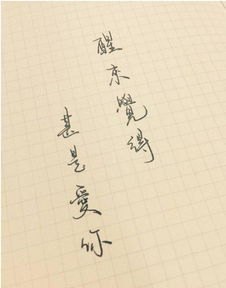 醒來覺得
甚是愛你